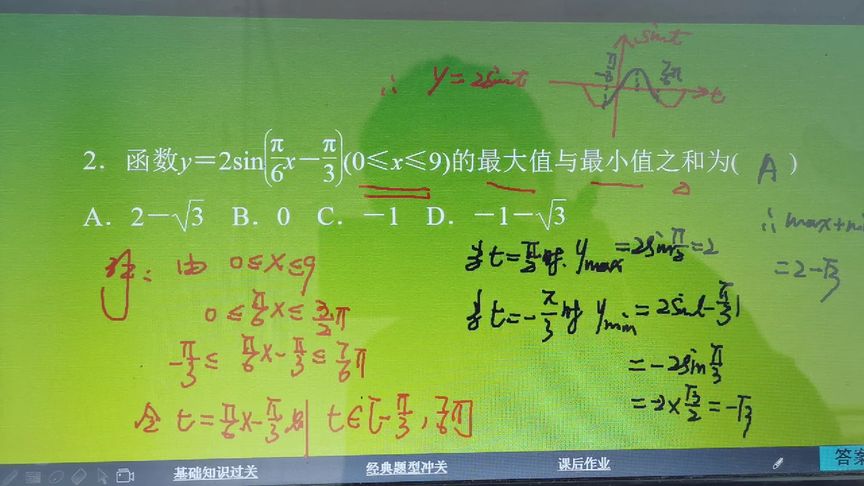 ∴ y=2sint
sint
-π/6 7/6π
t
2. 函数y=2sin(π/6x-π/3)(0≤x≤9)的最大值与最小值之和为( A )
A. 2-√3 B. 0 C. -1 D. -1-√3
∴ max+mi
=2-√3
解: 由 0≤x≤9
0≤π/6x≤3/2π
-π/3≤π/6x-π/3≤7/6π
令 t=π/6x-π/3,则 t∈[-π/3,7/6π]
当t=π/2时. ymax=2sinπ/2=2
当t=-π/3时 ymin=2sin(-π/3)
=-2sinπ/3
=-2×√3/2=-√3
基础知识过关 经典题型冲关 课后作业 答案